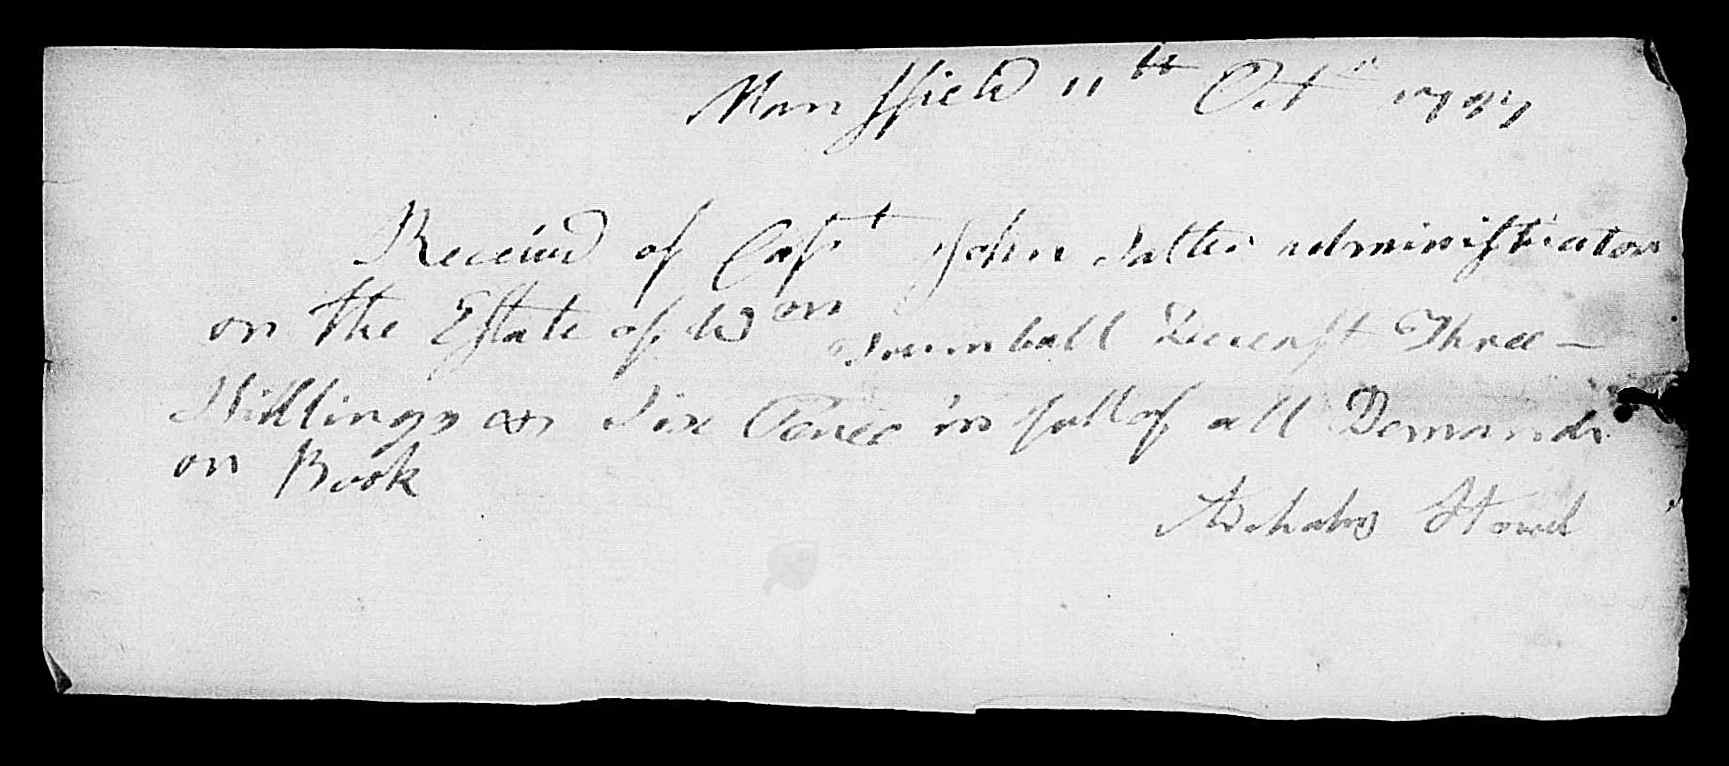 Mansfield 11th Octr 1797
Receivd of Capt John Salter administrator
on the Estate of Wm Trumball Deceast Three —
Shillings & Six Pence in full of all Demands
on Book
Howd